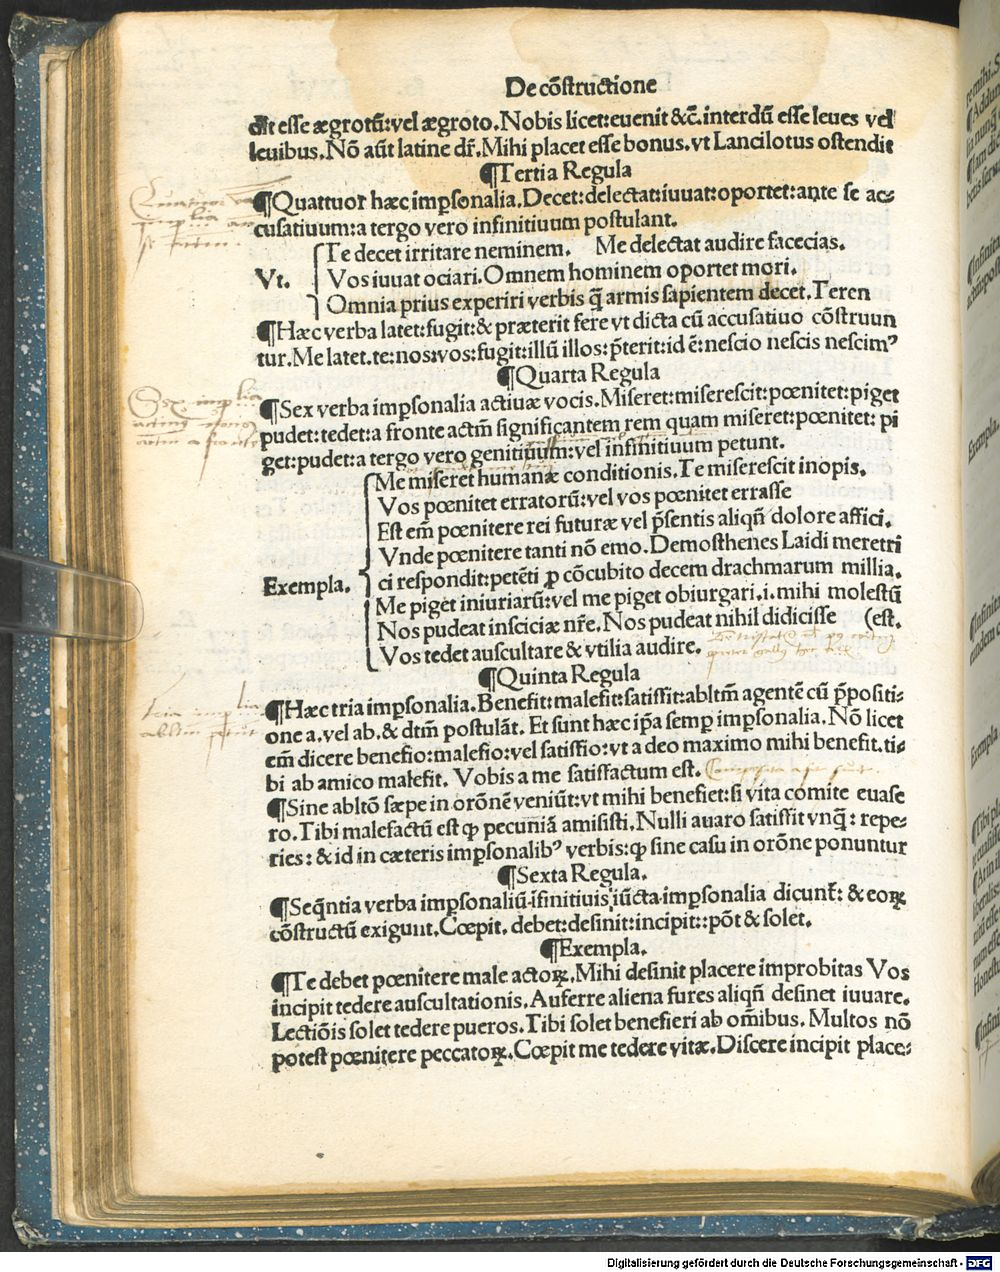 De cõstructione
dit esse ægrotũ:vel ægroto.Nobis licet:euenit &c̃.interdũ esse leues vel
leuibus.Nõ aũt latine dr̃.Mihi placet esse bonus.vt Lancilotus ostendit
¶Tertia Regula
¶Quattuor hæc imp̱sonalia.Decet:delectat:iuuat:oportet:ante se ac-
cusatiuum:a tergo vero infinitiuum postulant.
Te decet irritare neminem. Me delectat audire facecias.
Vt. Vos iuuat ociari.Omnem hominem oportet mori.
Omnia prius experiri verbis q̃ armis sapientem decet.Teren
¶Hæc verba latet:fugit:& præterit fere vt dicta cũ accusatiuo cõstruun
tur.Me latet.te:nos:vos:fugit:illũ illos:p̃terit:id ẽ:nescio nescis nescimꝰ
¶Quarta Regula
¶Sex verba imp̱sonalia actiuæ vocis.Miseret:miserescit:pœnitet:piget
pudet:tedet:a fronte actm̃ significantem rem quam miseret:pœnitet: pi
get:pudet:a tergo vero genitiuum:vel infinitiuum petunt.
Me miseret humanæ conditionis.Te miserescit inopis.
Vos pœnitet erratorũ:vel vos pœnitet errasse
Est em̃ pœnitere rei futuræ vel p̃sentis aliqñ dolore affici.
Vnde pœnitere tanti nõ emo.Demosthenes Laidi meretri
Exempla. ci respondit:petẽti ꝓ cõcubito decem drachmarum millia.
Me piget iniuriarũ:vel me piget obiurgari.i.mihi molestũ
Nos pudeat insciciæ nr̃e.Nos pudeat nihil didicisse (est.
Vos tedet auscultare & vtilia audire.
¶Quinta Regula
¶Hæc tria imp̱sonalia.Benefit:malefit:satisfit:abltm̃ agentẽ cũ p̃positi-
one a.vel ab.& dtm̃ postulãt. Et sunt hæc ip̃a semp̱ imp̱sonalia.Nõ licet
em̃ dicere benefio:malefio:vel satisfio:vt a deo maximo mihi benefit.ti-
bi ab amico malefit. Vobis a me satisfactum est.
¶Sine abltõ sæpe in orõne veniũt:vt mihi benefiet:si vita comite euase
ro.Tibi malefactũ est ꝙ pecuniã amisisti.Nulli auaro satisfit vnq̃: repe-
ries: & id in cæteris imp̱sonalibꝰ verbis:ꝙ sine casu in orõne ponuntur
¶Sexta Regula.
¶Seq̃ntia verba imp̱sonaliũ ĩfinitiuis iũcta imp̱sonalia dicunt᷑: & eoꝝ
cõstructũ exigunt.Cœpit. debet:desinit:incipit:põt & solet.
¶Exempla.
¶Te debet pœnitere male actoꝝ.Mihi desinit placere improbitas Vos
incipit tedere auscultationis.Auferre aliena fures aliqñ desinet iuuare.
Lectiõis solet tedere pueros.Tibi solet benefieri ab om̃ibus. Multos nõ
potest pœnitere peccatoꝝ.Cœpit me tedere vitæ.Discere incipit place-
Digitalisierung gefördert durch die Deutsche Forschungsgemeinschaft - DFG